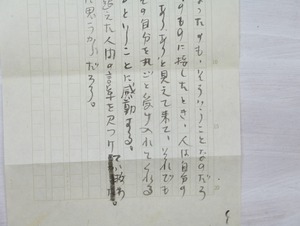 ったのも、そういうことなのだろ
のものに接したとき、人は自分の
ありありと見えて来て、それでも
の自分を丸ごと受け入れてくれる
とりことに感動する。
えた人間の言葉を見つけ
に思うからだろう。